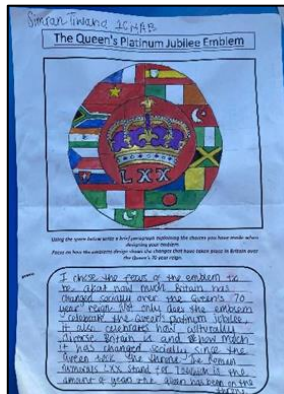 Simran Tiwana 10HAB
The Queen's Platinum Jubilee Emblem
LXX
Using the space below write a brief paragraph explaining the choices you have made when
designing your emblem.
Focus on how the emblems design shows the changes that have taken place in Britain over
the Queen's 70 year reign.
I chose the focus of the emblem to
be about how much Britain has
changed socially over the Queen's 70
year reign. Not only does the emblem
celebrate the Queen's platinum jubilee,
it also celebrates how culturally
diverse Britain is and how much
it has changed socially since the
Queen took the throne. The Roman
numerals LXX stand for 70 which is the
amount of years the Queen has been on the
throne